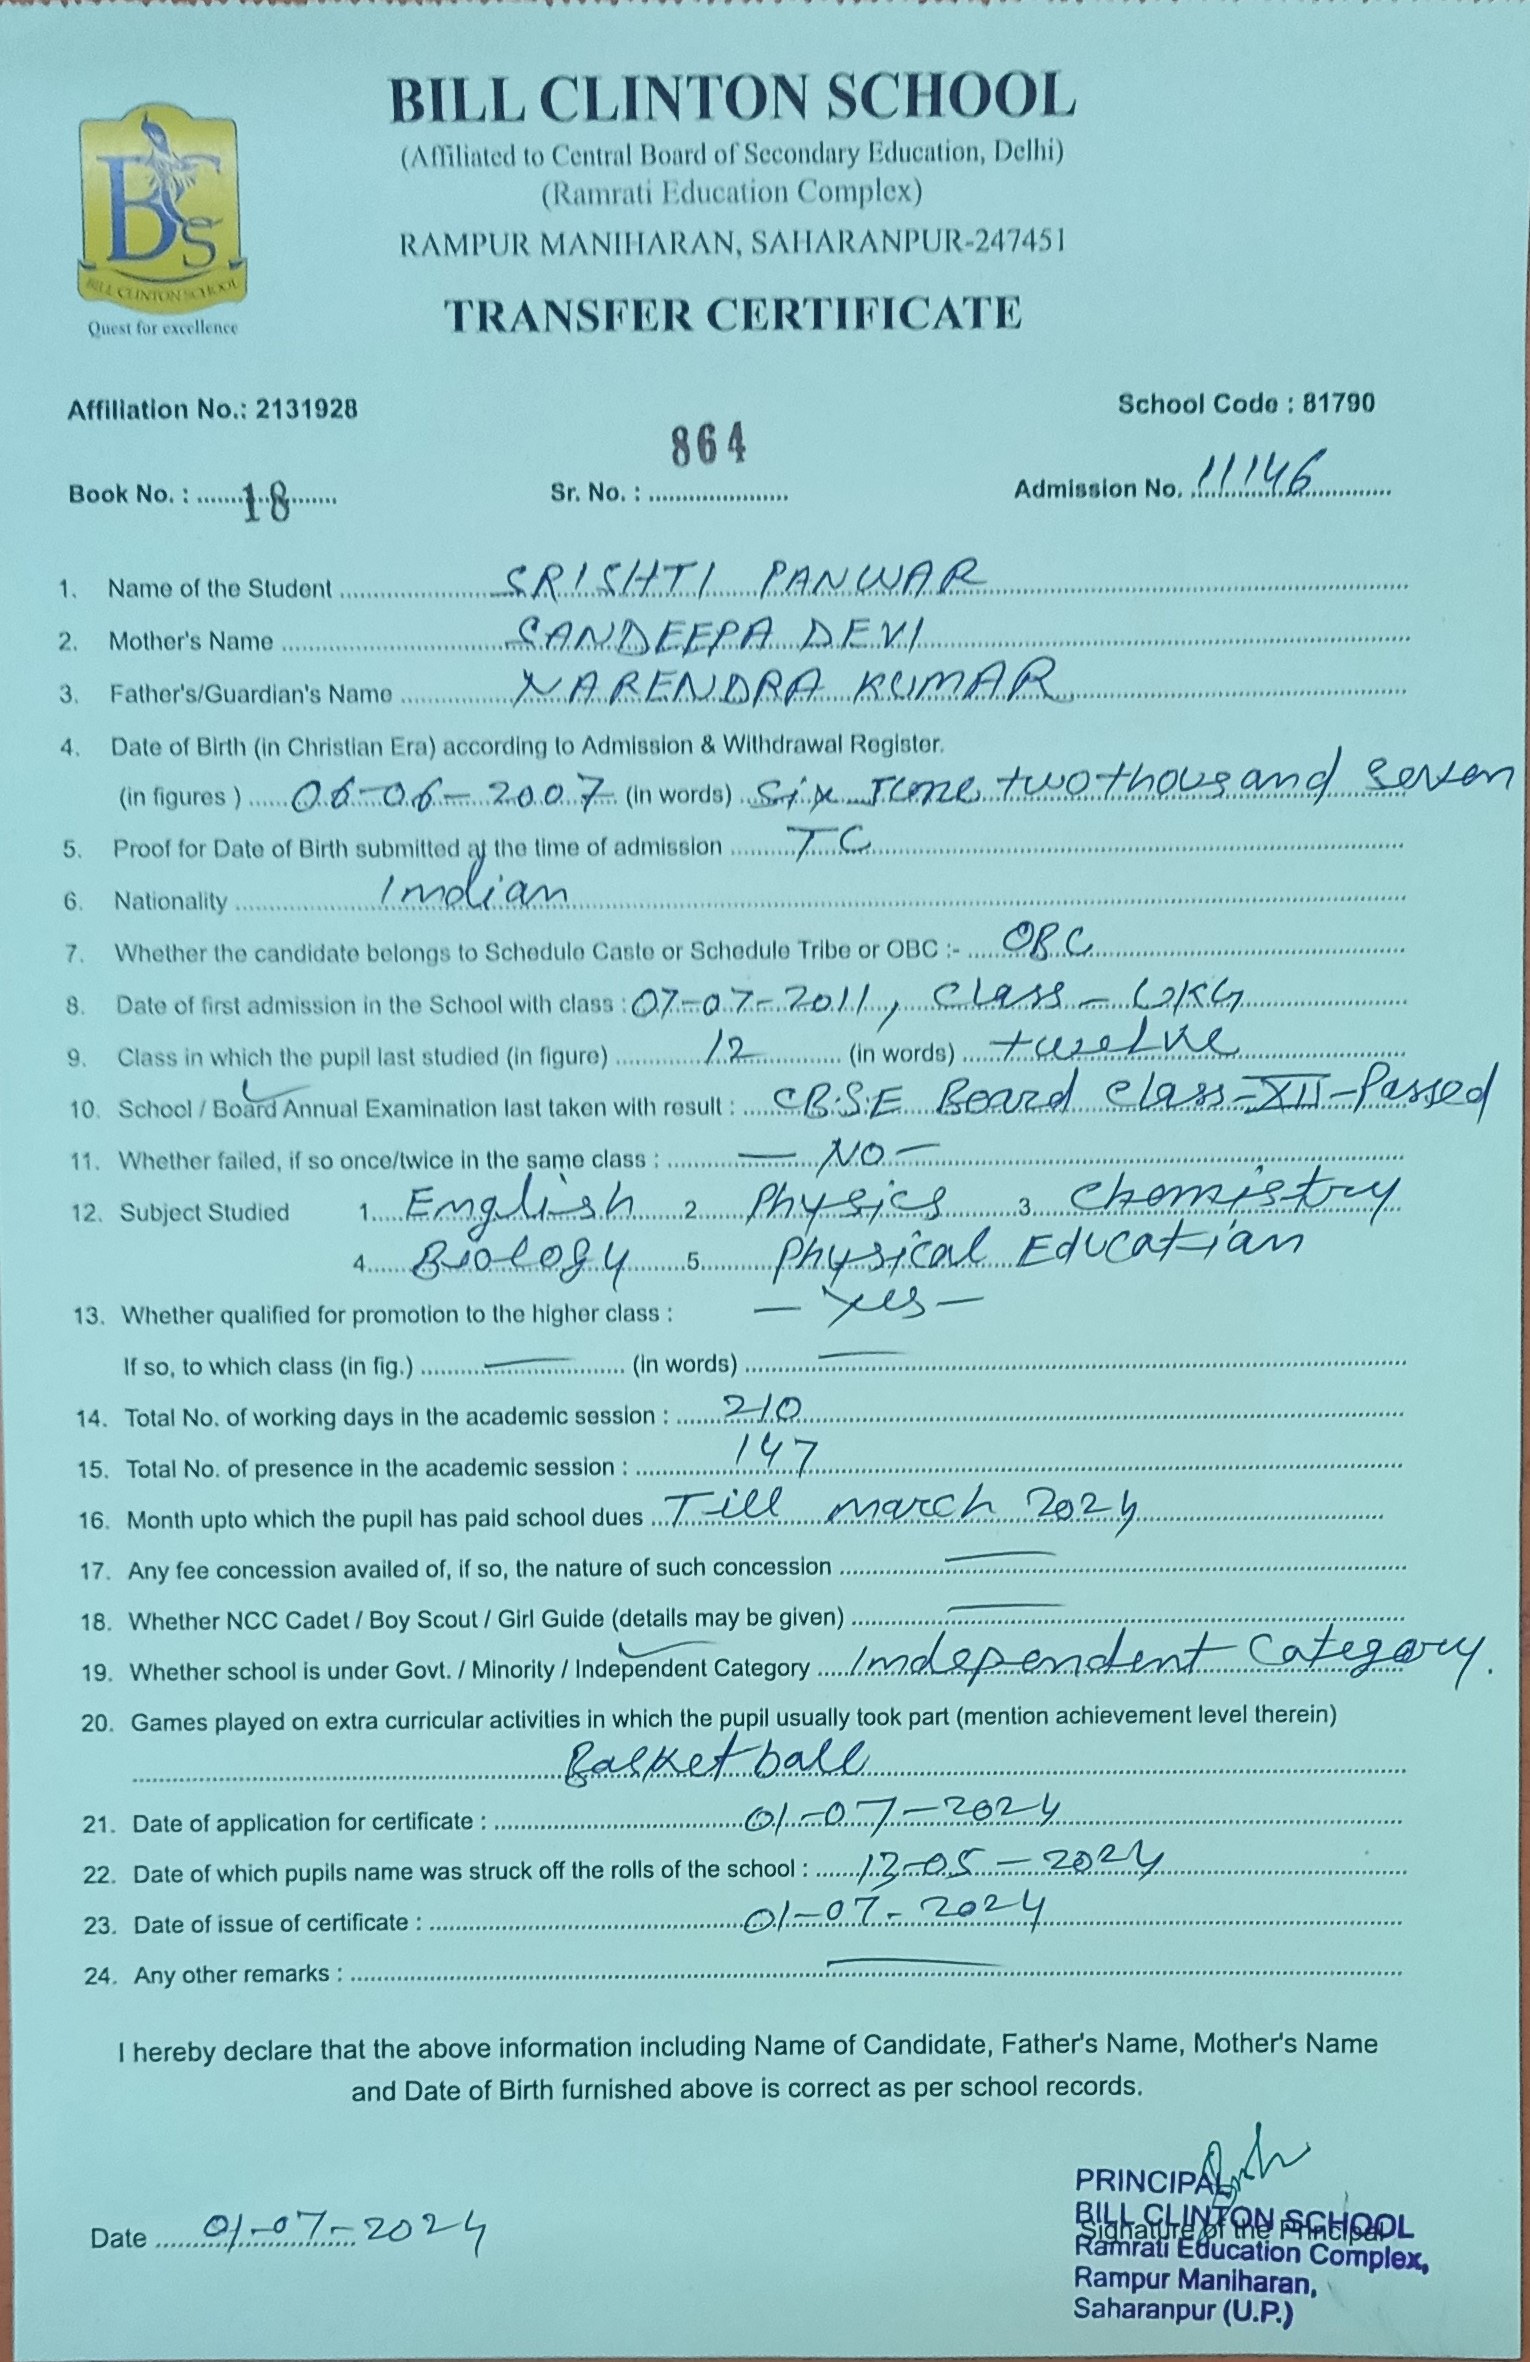 BILL CLINTON SCHOOL
(Affiliated to Central Board of Secondary Education, Delhi)
(Ramrati Education Complex)
RAMPUR MANIHARAN, SAHARANPUR-247451
BCS
BILL CLINTON SCHOOL
Quest for excellence
TRANSFER CERTIFICATE
Affiliation No.: 2131928 School Code : 81790
Book No. : 18 Sr. No. : 864 Admission No. 11146
1. Name of the Student SRISHTI PANWAR
2. Mother's Name SANDEEPA DEVI
3. Father's/Guardian's Name NARENDRA KUMAR
4. Date of Birth (in Christian Era) according to Admission & Withdrawal Register.
(in figures ) 06-06-2007 (in words) Six June two thousand seven
5. Proof for Date of Birth submitted at the time of admission TC
6. Nationality Indian
7. Whether the candidate belongs to Schedule Caste or Schedule Tribe or OBC :- OBC
8. Date of first admission in the School with class : 07-07-2011, Class - UKG
9. Class in which the pupil last studied (in figure) 12 (in words) twelve
10. School / Board Annual Examination last taken with result : C.B.S.E Board Class-XII-Passed
11. Whether failed, if so once/twice in the same class : — NO —
12. Subject Studied 1. English 2. Physics 3. Chemistry
4. Biology 5. Physical Education
13. Whether qualified for promotion to the higher class : — Yes —
If so, to which class (in fig.) — (in words) —
14. Total No. of working days in the academic session : 210
15. Total No. of presence in the academic session : 147
16. Month upto which the pupil has paid school dues Till march 2024
17. Any fee concession availed of, if so, the nature of such concession —
18. Whether NCC Cadet / Boy Scout / Girl Guide (details may be given) —
19. Whether school is under Govt. / Minority / Independent Category Independent Category.
20. Games played on extra curricular activities in which the pupil usually took part (mention achievement level therein)
Basketball
21. Date of application for certificate : 01-07-2024
22. Date of which pupils name was struck off the rolls of the school : 13-05-2024
23. Date of issue of certificate : 01-07-2024
24. Any other remarks : —
I hereby declare that the above information including Name of Candidate, Father's Name, Mother's Name
and Date of Birth furnished above is correct as per school records.
Date 01-07-2024
PRINCIPAL
BILL CLINTON SCHOOL
Signature of the Principal
Ramrati Education Complex,
Rampur Maniharan,
Saharanpur (U.P.)